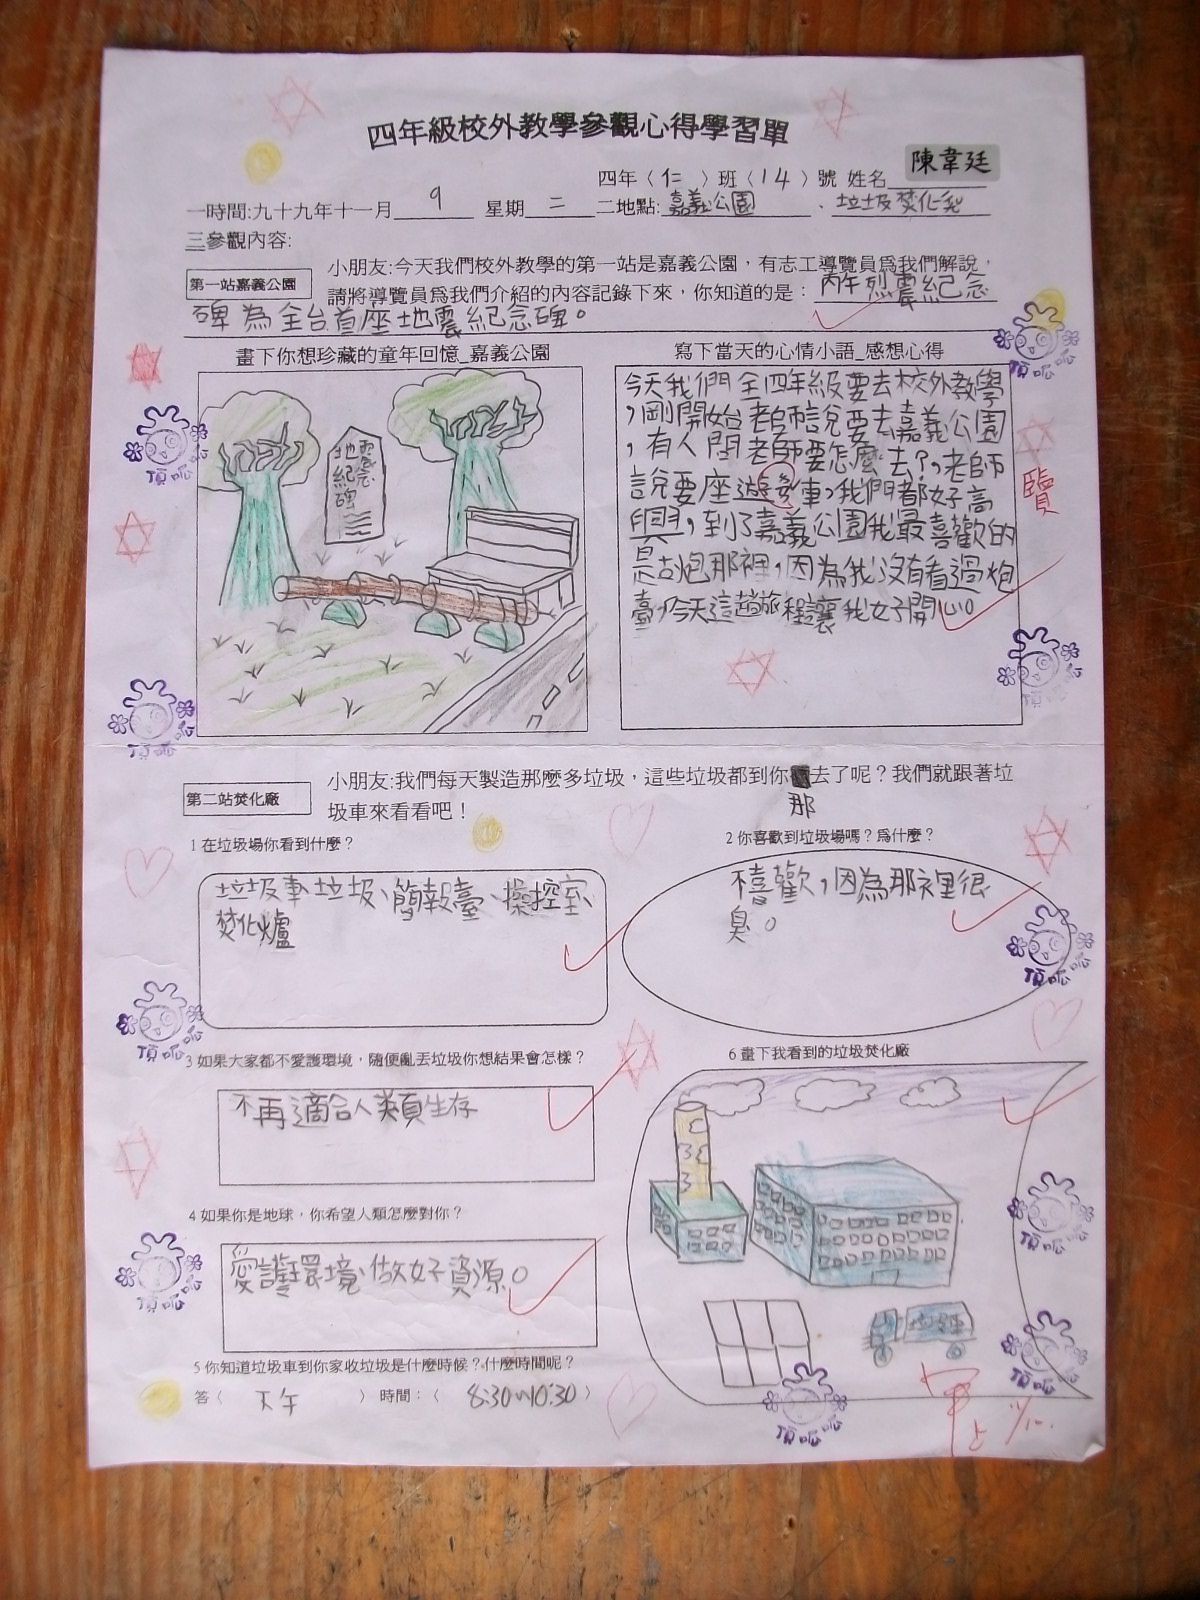 四年級校外教學參觀心得學習單
四年（仁）班（14）號 姓名 陳韋廷
一時間:九十九年十一月 9 星期 二 二地點: 嘉義公園、垃圾焚化
三參觀內容:
第一站嘉義公園
小朋友:今天我們校外教學的第一站是嘉義公園，有志工導覽員為我們解說，
請將導覽員為我們介紹的內容記錄下來，你知道的是：丙午烈震紀念
碑為全台首座地震紀念碑。
畫下你想珍藏的童年回憶_嘉義公園
地震
紀念
碑
寫下當天的心情小語_感想心得
今天我們全四年級要去校外教學
，剛開始老師說要去嘉義公園
，有人問老師要怎麼去?，老師
說要座遊車，我們都好高
興，到了嘉義公園我最喜歡的
是古炮那裡，因為我沒有看過炮
臺，今天這趟旅程讓我好開心。
覽
頂呱呱
頂呱呱
頂呱呱
頂呱呱
第二站焚化廠
小朋友:我們每天製造那麼多垃圾，這些垃圾都到你去了呢？我們就跟著垃
那
圾車來看看吧！
1 在垃圾場你看到什麼？
垃圾車、垃圾、簡報臺、操控室、
焚化爐
2 你喜歡到垃圾場嗎？為什麼？
不喜歡，因為那裡很
臭。
頂呱呱
頂呱呱
3 如果大家都不愛護環境，隨便亂丟垃圾你想結果會怎樣？
不再適合人類生存
4 如果你是地球，你希望人類怎麼對你？
愛護環境、做好資源。
頂呱呱
5 你知道垃圾車到你家收垃圾是什麼時候？什麼時間呢？
答（ 下午 ） 時間：（ 8:30~10:30 ）
6 畫下我看到的垃圾焚化廠
頂呱呱
頂呱呱
頂呱呱
11/10